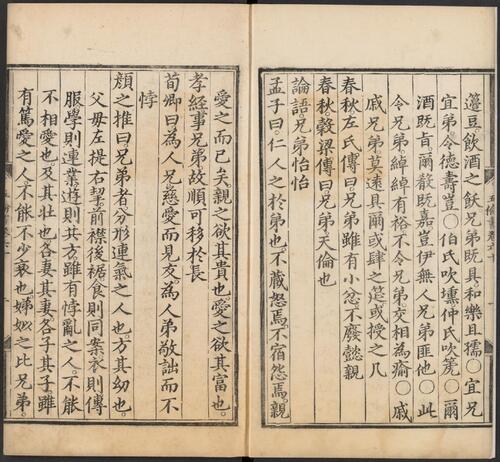 籩豆飲酒之飫兄弟既具和樂且孺○宜兄
宜弟令德壽豈○伯氏吹壎仲氏吹篪○爾
酒既旨爾殽既嘉豈伊異人兄弟匪他○此
令兄弟綽綽有裕不令兄弟交相為瘉○戚
戚兄弟莫遠具爾或肆之筵或授之几
春秋左氏傳曰兄弟雖有小忿不廢懿親
春秋穀梁傳曰兄弟天倫也
論語兄弟怡怡
孟子曰仁人之於弟也不藏怒焉不宿怨焉親
愛之而已矣親之欲其貴也愛之欲其富也
孝經事兄弟故順可移於長
荀卿曰為人兄慈愛而見友為人弟敬詘而不
悖
顏之推曰兄弟者分形連氣之人也方其幼也
父母左提右挈前襟後裾食則同案衣則傳
服學則連業遊則共方雖有悖亂之人不能
不相愛也及其壯也各妻其妻各子其子雖
有篤愛之人不能不少衰也娣姒之比兄弟